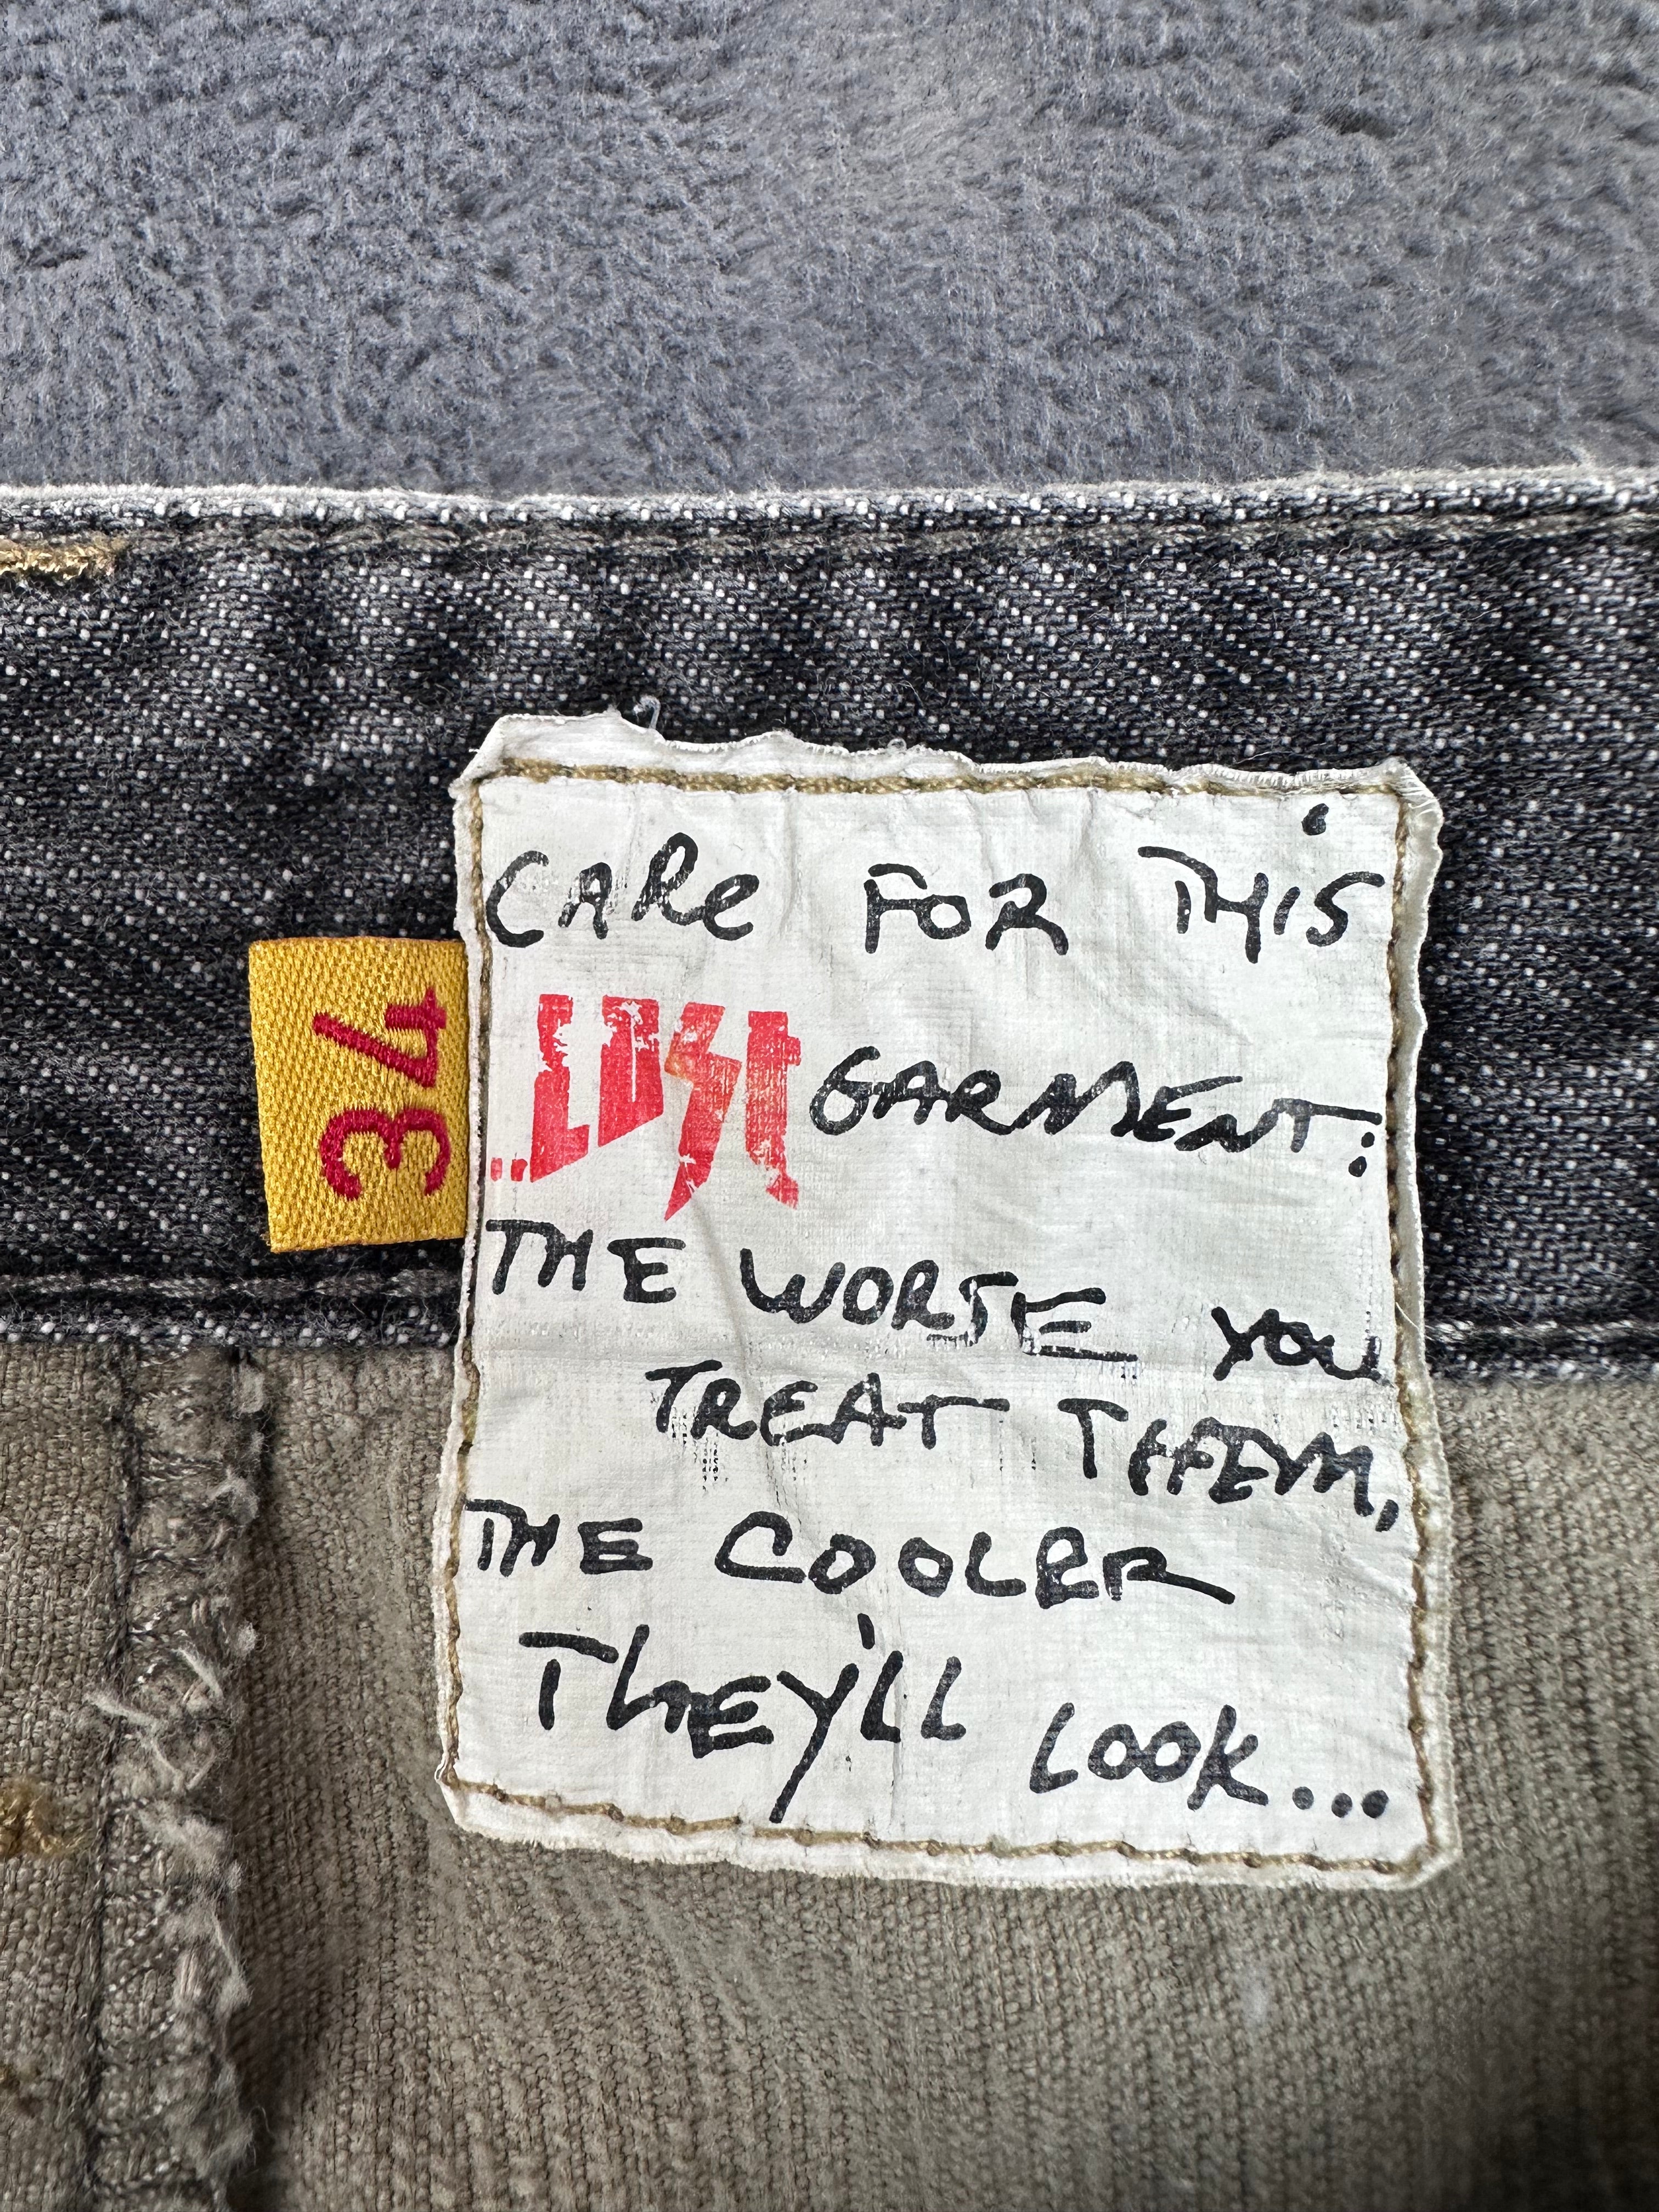 CARe FOR THiS
...LOST GARMENT:
THE WORSE YOU
TREAT THEM,
THE COOLER
TheY'LL LOOK...
34